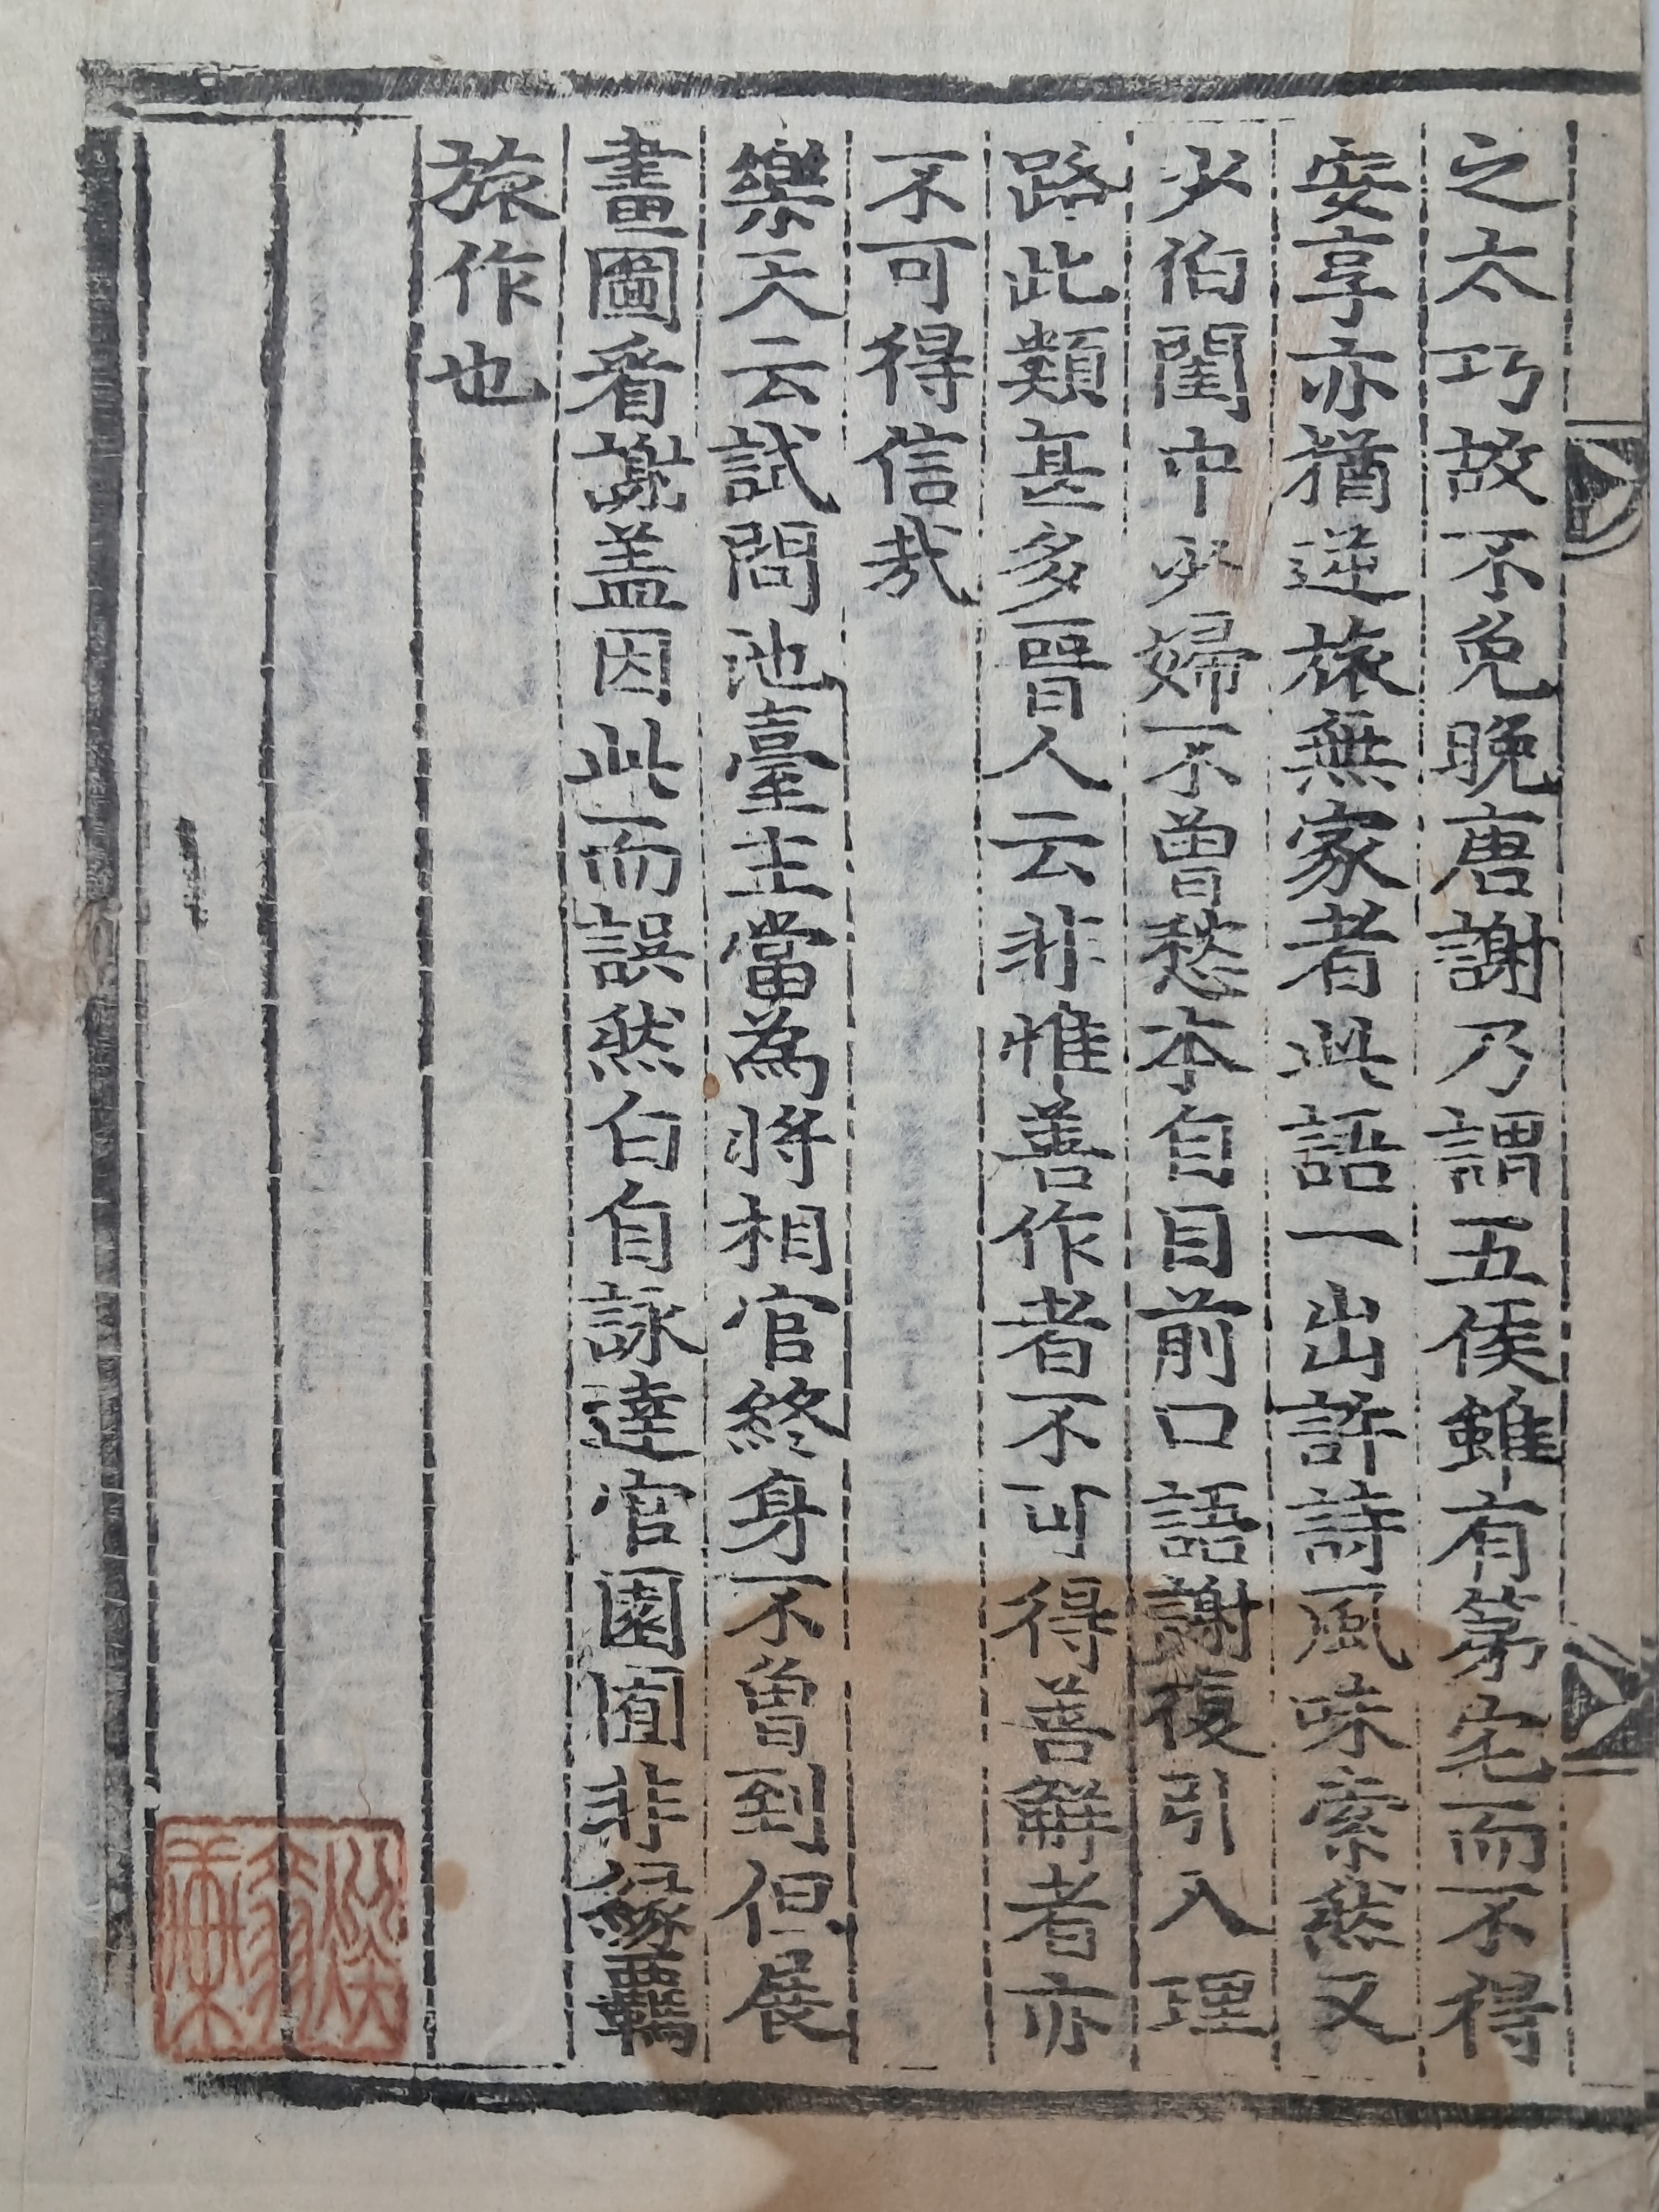 之太巧故不免晚唐謝乃謂五侯雖有第宅而不得
安享亦猶逆旅無家者此語一出許詩風味索然又
少伯閨中少婦不曾愁本自目前口語謝復引入理
路此類甚多晉人云非惟善作者不可得善解者亦
不可得信哉
樂天云試問池臺主當爲將相官終身不曾到但展
畫圖看謝盖因此而誤然白自詠達官園囿非緣羈
旅作也